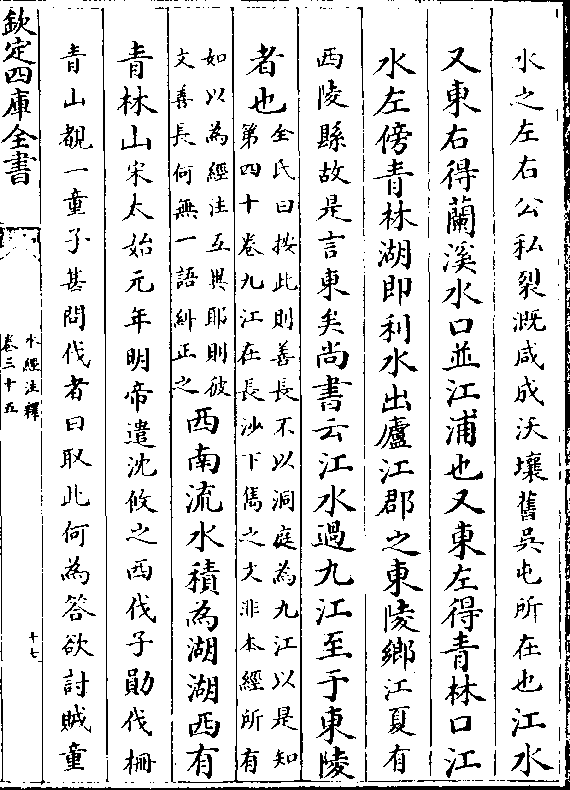 水之左右公私裂溉咸成沃壤舊吳屯所在也江水
又東右得蘭溪水口並江浦也又東左得青林口江
水左傍青林湖即利水出廬江郡之東陵鄉江夏有
西陵縣故是言東矣尚書云江水過九江至于東陵
者也全氏曰按此則善長不以洞庭為九江以是知
第四十卷九江在長沙下雋之文非本經所有
如以為經注互異耶則彼
文善長何無一語糾正之西南流水積為湖湖西有
青林山宋太始元年明帝遣沈攸之西伐子勛伐柵
青山覩一童子甚問伐者曰取此何為答欲討賊童
欽定四庫全書
水經注釋
卷三十五
十七